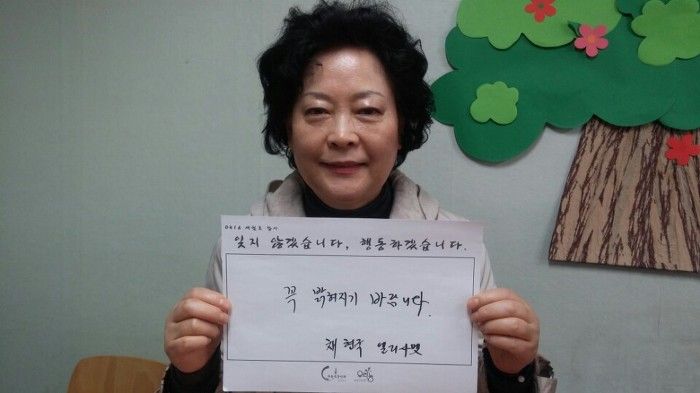 0416 세월호 참사
잊지 않겠습니다, 행동하겠습니다.
꼭 밝혀지기 바랍니다.
채현국 엘리사벳